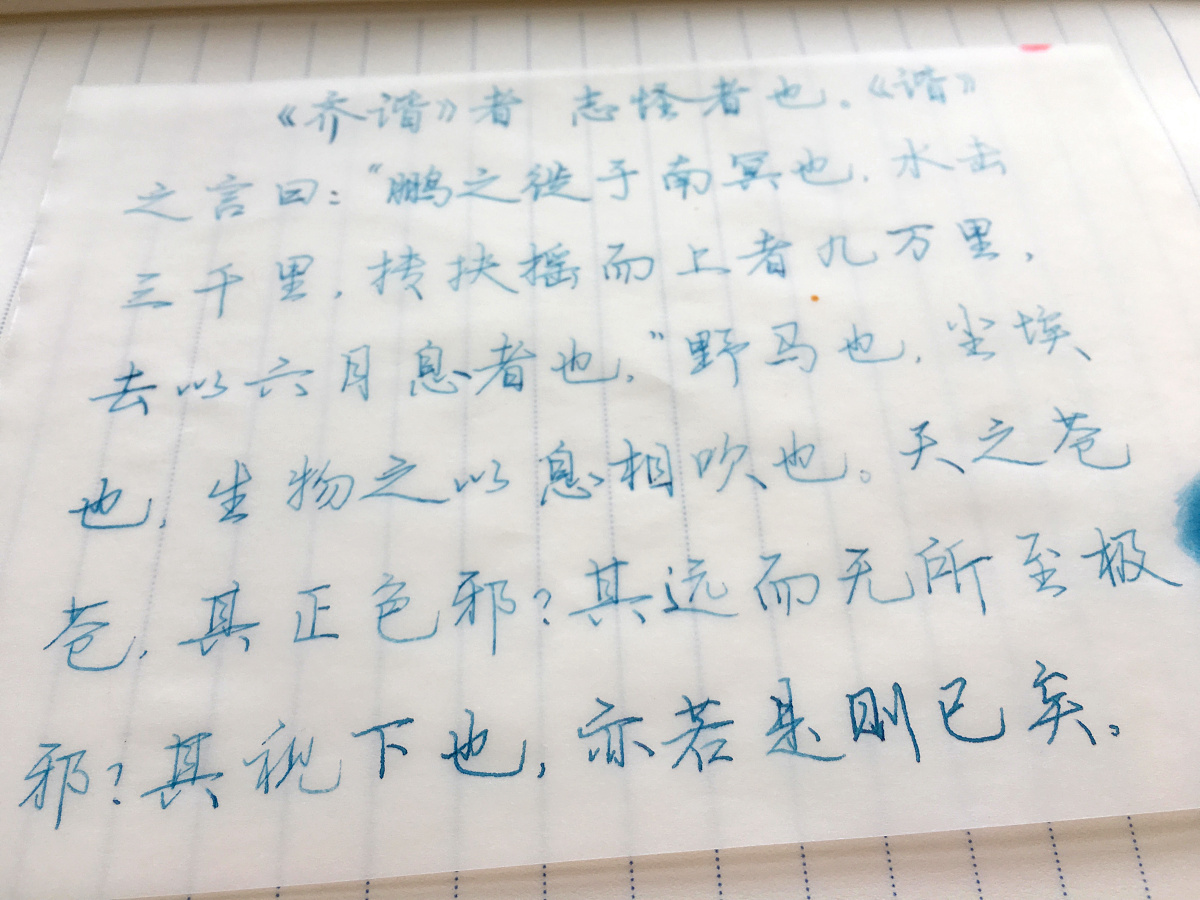 《齐谐》者 志怪者也。《谐》
之言曰：“鹏之徙于南冥也，水击
三千里，抟扶摇而上者九万里，
去以六月息者也，”野马也，尘埃
也，生物之以息相吹也。天之苍
苍，其正色邪？其远而无所至极
邪？其视下也，亦若是则已矣。